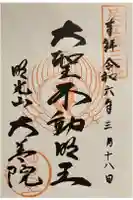 奉拝 令和六年三月十八日
大聖不動明王
明光山
大善院